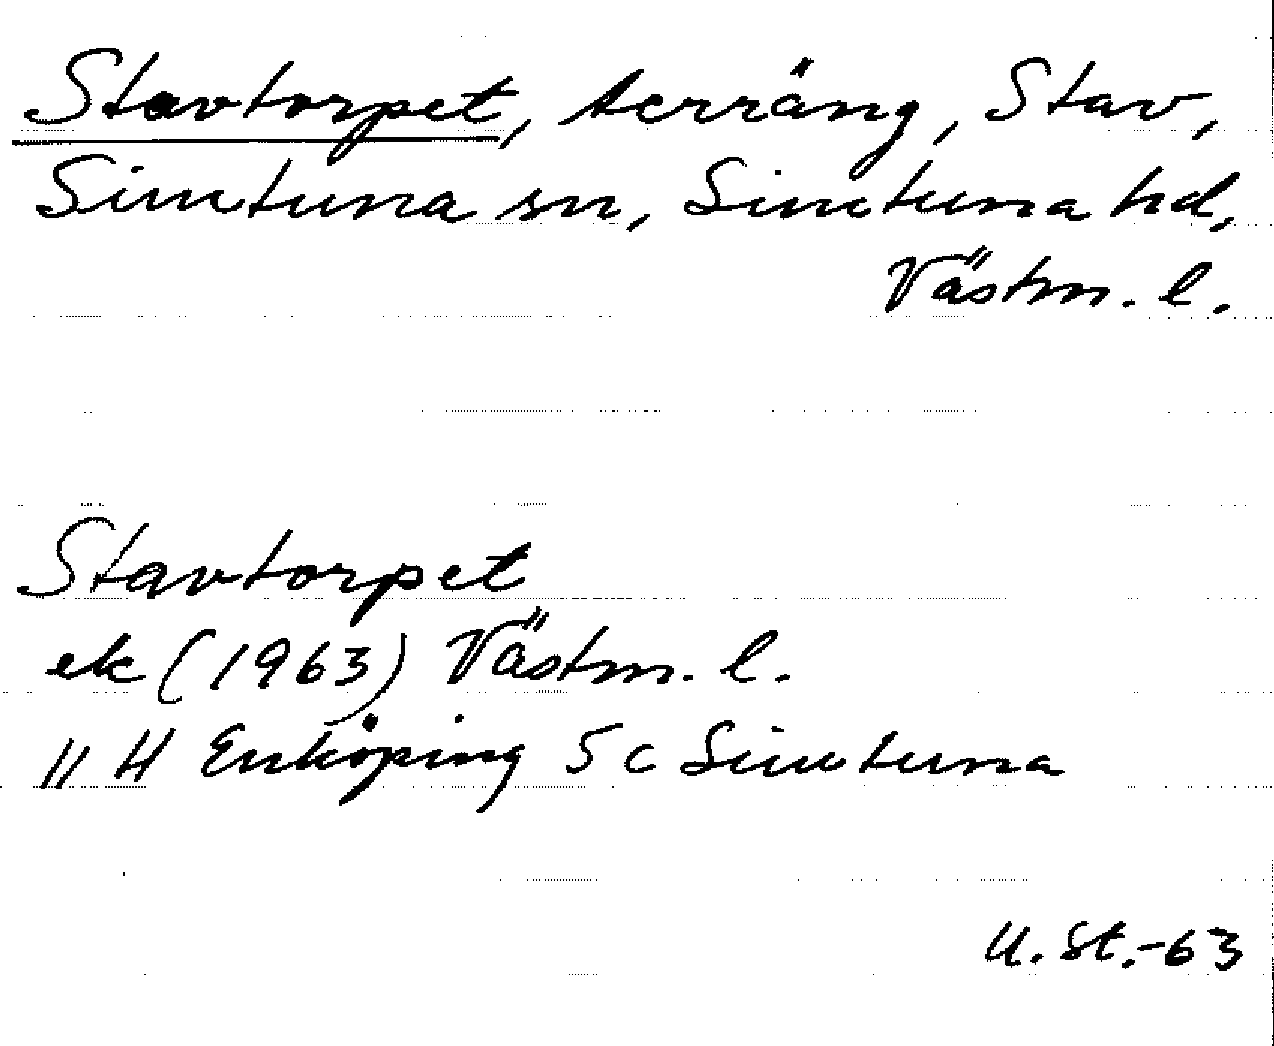 Stavtorpet, terräng, Stav,
Simtuna sn, Simtuna hd,
Västm. l.
Stavtorpet
ek (1963) Västm. l.
11 H Enköping 5 c Simtuna
U. St.-63